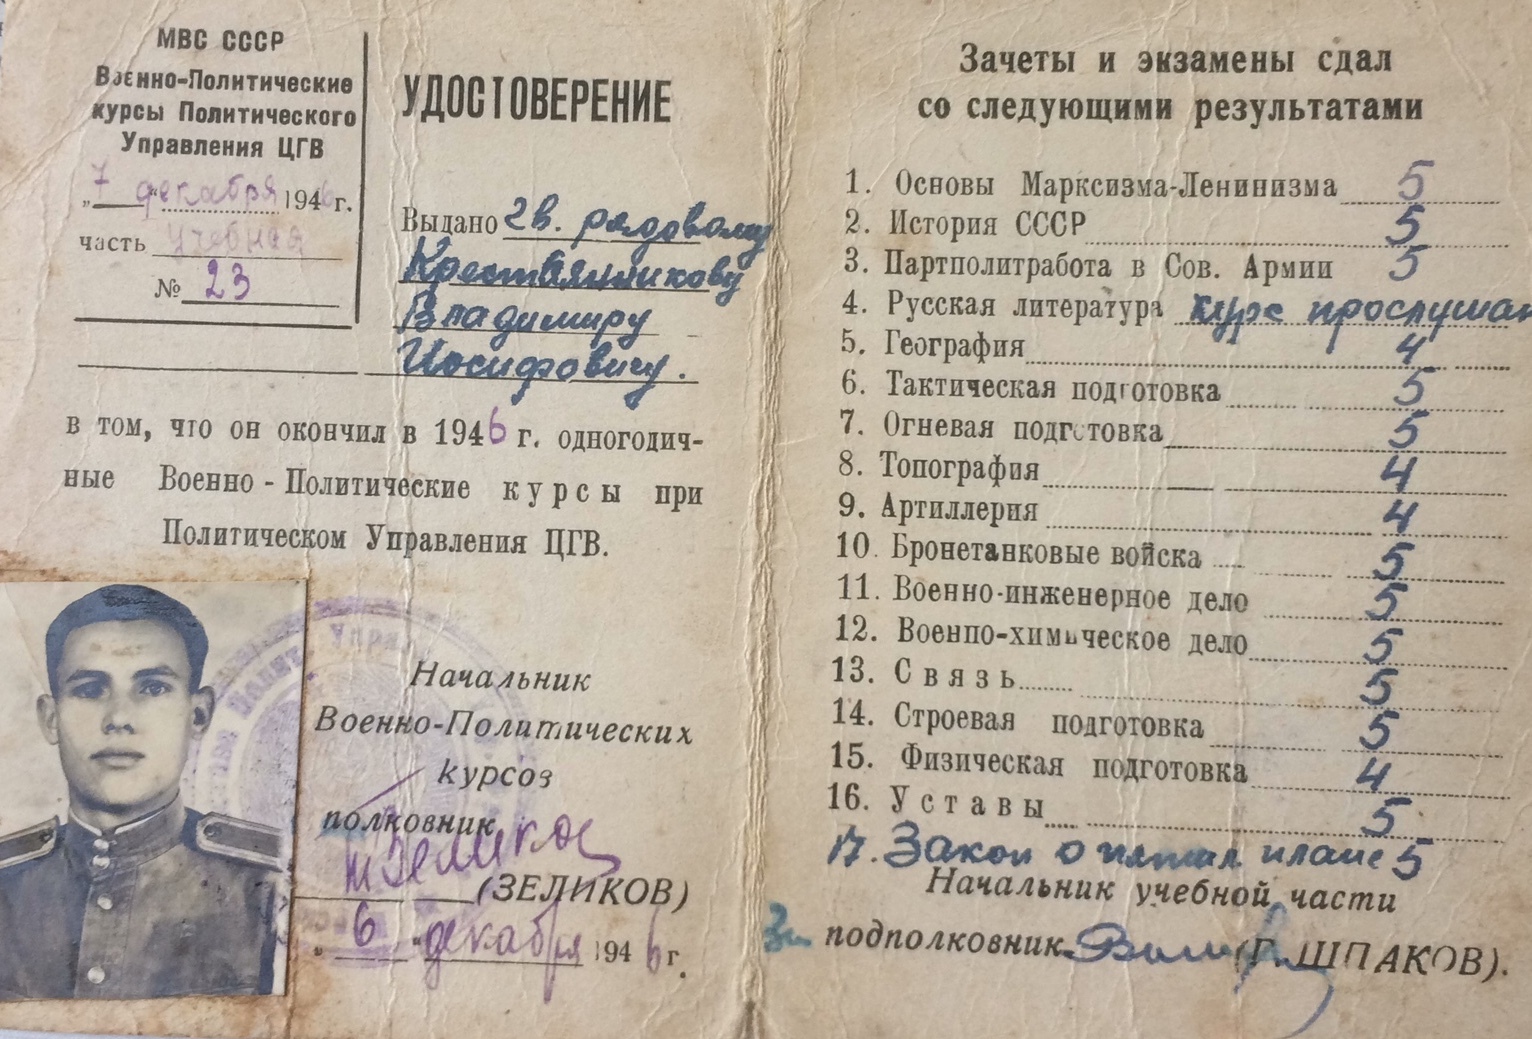 МВС СССР
Военно-Политические
курсы Политического
Управления ЦГВ
„7" декабря 1946 г.
часть учебная
№ 23
УДОСТОВЕРЕНИЕ
Выдано гв. рядовому
Крестьянникову
Владимиру
Иосифовичу.
в том, что он окончил в 1946 г. одногодич-
ные Военно-Политические курсы при
Политическом Управления ЦГВ.
Начальник
Военно-Политических
курсов
полковник
(ЗЕЛИКОВ)
„6" декабря 1946 г.
Зачеты и экзамены сдал
со следующими результатами
1. Основы Марксизма-Ленинизма 5
2. История СССР 5
3. Партполитработа в Сов. Армии 5
4. Русская литература курс прослушан
5. География 4
6. Тактическая подготовка 5
7. Огневая подготовка 5
8. Топография 4
9. Артиллерия 4
10. Бронетанковые войска 5
11. Военно-инженерное дело 5
12. Военно-химическое дело 5
13. Связь 5
14. Строевая подготовка 5
15. Физическая подготовка 4
16. Уставы 5
17. Закон о пятил. плане 5
Начальник учебной части
За подполковник (Г. ШПАКОВ).